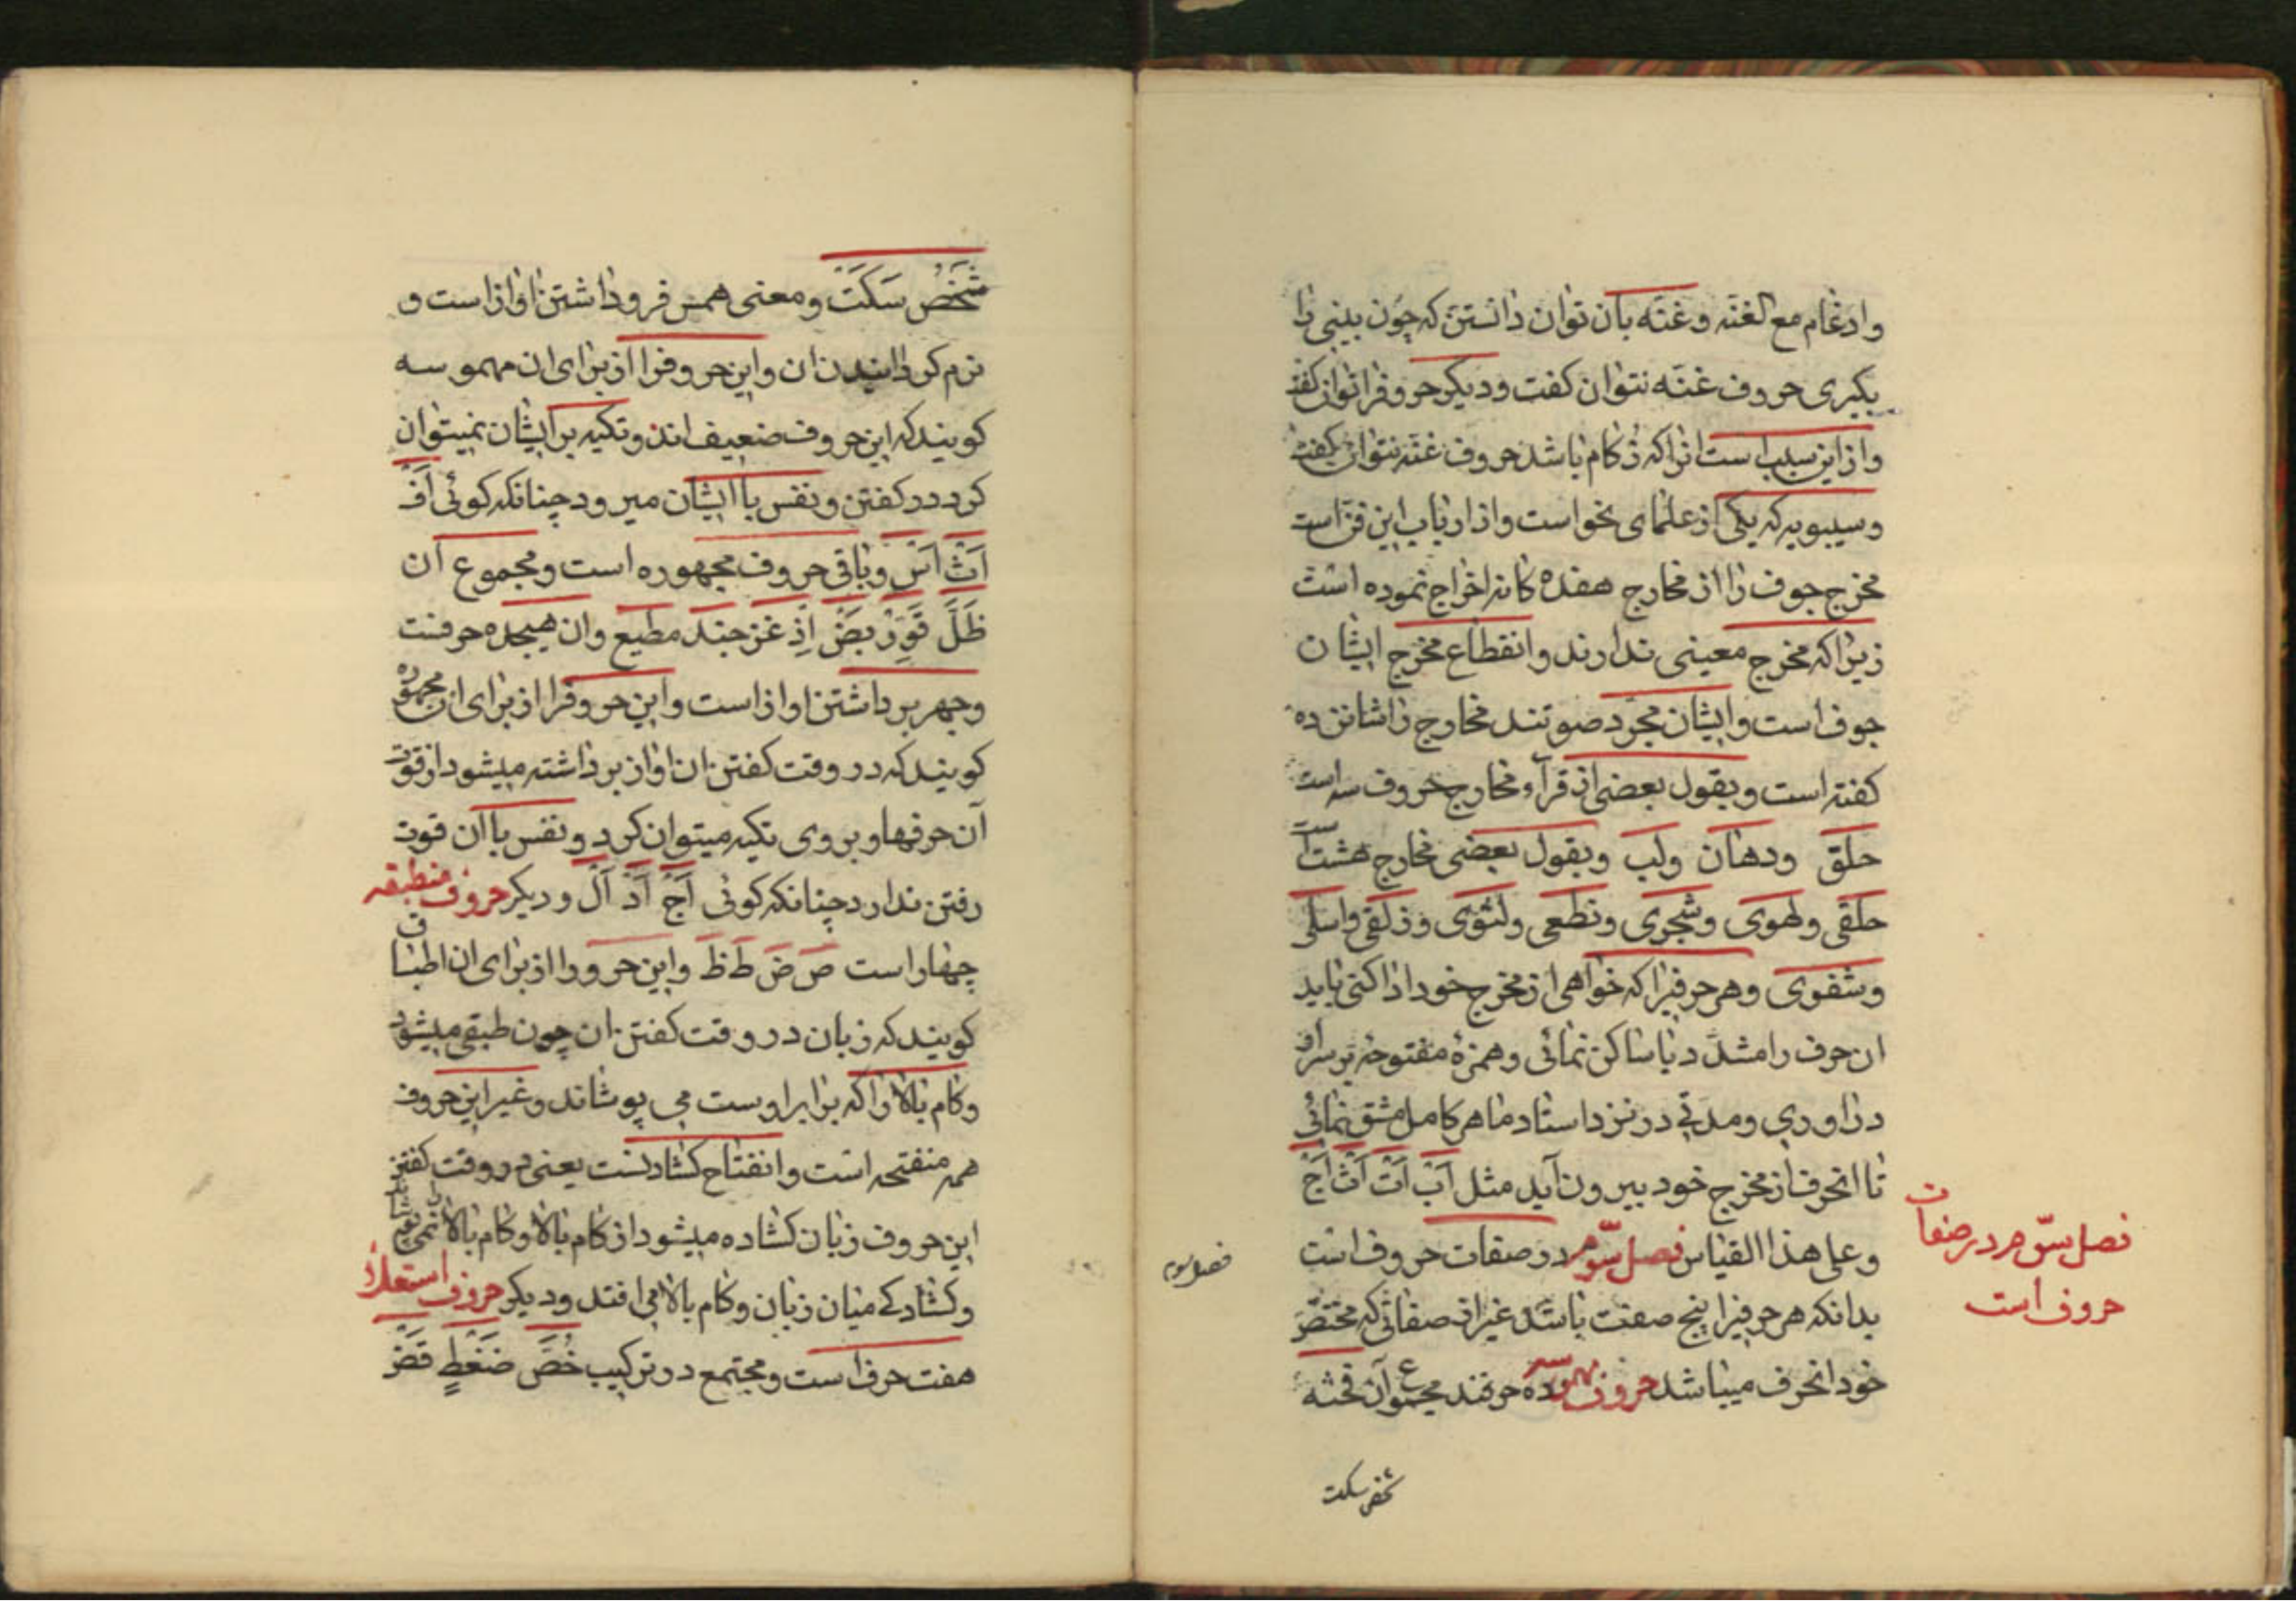 وادغام مع الغنه وغنّه بان توان دانستن که چون بینی را
بکیری حروف غنّه نتوان کفت ودیکر حروفرا توان کفت
وازاین سبب است انرا که زکام باشد حروف غنّه نتوان کفت
وسیبویه که یکی از علمای نحواست واز ارباب این فن است
مخرج جوف را از مخارج هفده کانه اخراج نموده است
زیرا که مخرج معینی ندارند وانقطاع مخرج ایشان
جوف است وایشان مجرّد صوتند مخارج را شانزده
کفته است وبقول بعضی از قرآء مخارج حروف سه است
حلق ودهان ولب وبقول بعضی مخارج هشت است
حلقی ولهوی وشجری ونطعی ولثوی وذلقی واسلی
وشفوی وهر حرفیرا که خواهی از مخرج خود ادا کنی باید
ان حرف را مشدّد یا ساکن نمائی وهمزهٔ مفتوحه بر سر ان
دراوری ومدتی در نزد استاد ماهر کامل مشق نمائی
تا انحرف از مخرج خود بیرون آید مثل اَبْ اَتْ اَثْ اَجْ
وعلی هذا القیاس فصل سوّم در صفات حروف است
بدانکه هر حرفیرا پنج صفت باشد غیر از صفاتی که مختصّ
خود انحرف میباشد حروف مهموسه ده حرفند مجموع آن فحثه
شخص سکت
فصل سوّم در صفات
حروف است
فصل سوم
شَخْصٌ سَکَتَ ومعنی همس فرو داشتن اواز است و
نرم کردانیدن ان واین حروفرا از برای ان مهموسه
کویند که این حروف ضعیف اند وتکیه بر ایشان نمیتوان
کرد در کفتن ونفس با ایشان میرود چنانکه کوئی اَفْ
اَثْ اَسْ وباقی حروف مجهوره است ومجموع ان
ظَلَّ قَوِّرْ بَضٌ اِذْ غز جند مطیع وان هیجده حرفست
وجهر برداشتن اواز است واین حروفرا از برای ان مجهوره
کویند که در وقت کفتن ان اواز برداشته میشود از قوّت
آن حرفها وبر وی تکیه میتوان کرد ونفس با ان قوت
رفتن ندارد چنانکه کوئی اَجْ اَدْ اَلْ ودیکر حروف منطبقه
چهار است ص ض ط ظ واین حرو را از برای ان اطباق
کویند که زبان در وقت کفتن ان چون طبقی میشود
وکام بالا را که برابر اوست می پوشاند وغیر این حروف
همه منفتحه است وانفتاح کشادنست یعنی در وقت کفتن
این حروف زبان کشاده میشود از کام بالا وکام بالا نمی
وکشادکی میان زبان وکام بالا می افتد ودیکر حروف استعلا
هفت حرف است ومجتمع در ترکیب خُصَّ ضَغْطٍ قَظْ